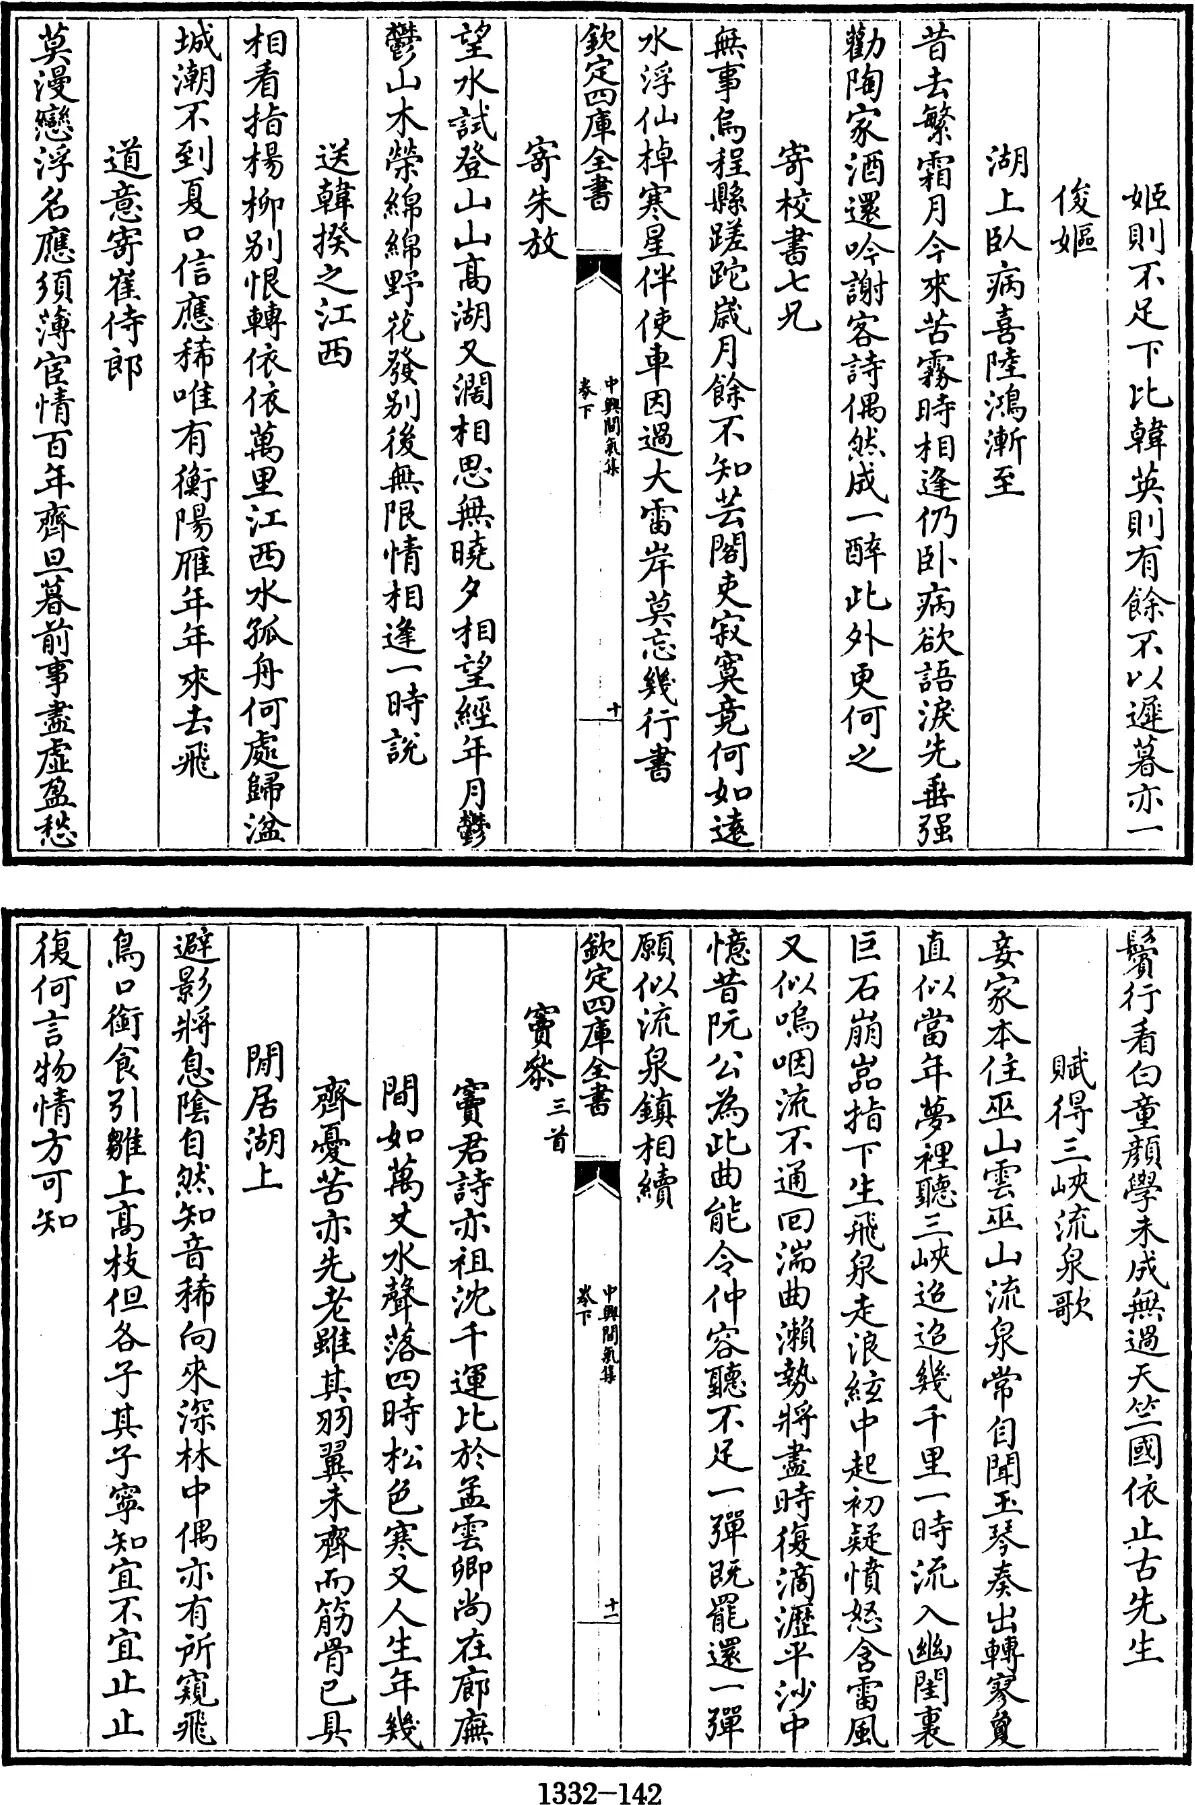 姬則不足下比韓英則有餘不以遲暮亦一
俊嫗
湖上臥病喜陸鴻漸至
昔去繁霜月今來苦霧時相逢仍卧病欲語淚先垂强
勸陶家酒還吟謝客詩偶然成一醉此外更何之
寄校書七兄
無事烏程縣蹉跎歲月餘不知芸閣吏寂寞竟何如逺
水浮仙棹寒星伴使車因過大雷岸莫忘幾行書
欽定四庫全書
中興間氣集
卷下
十
寄朱放
望水試登山山高湖又濶相思無曉夕相望經年月鬱
鬱山木榮綿綿野花發别後無限情相逢一時說
送韓揆之江西
相看指楊柳别恨轉依依萬里江西水孤舟何處歸湓
城潮不到夏口信應稀唯有衡陽雁年年來去飛
道意寄崔侍郎
莫漫戀浮名應須薄宦情百年齊旦暮前事盡虛盈愁
鬢行看白童顔學未成無過天竺國依止古先生
賦得三峽流泉歌
妾家本住巫山雲巫山流泉常自聞玉琴奏出轉寥夐
直似當年夢裡聽三峽迢迢幾千里一時流入幽閨裏
巨石崩崖指下生飛泉走浪絃中起初疑憤怒含雷風
又似嗚咽流不通回湍曲瀨勢將盡時復滴瀝平沙中
憶昔阮公為此曲能令仲容聽不足一彈既罷還一彈
願似流泉鎮相續
欽定四庫全書
中興間氣集
卷下
十一
竇叅三首
竇君詩亦祖沈千運比於孟雲卿尚在廊廡
間如萬丈水聲落四時松色寒又人生年幾
齊憂苦亦先老雖其羽翼未齊而筋骨已具
閒居湖上
避影將息陰自然知音稀向來深林中偶亦有所窺飛
鳥口銜食引雛上高枝但各子其子寧知宜不宜止止
復何言物情方可知
1332-142